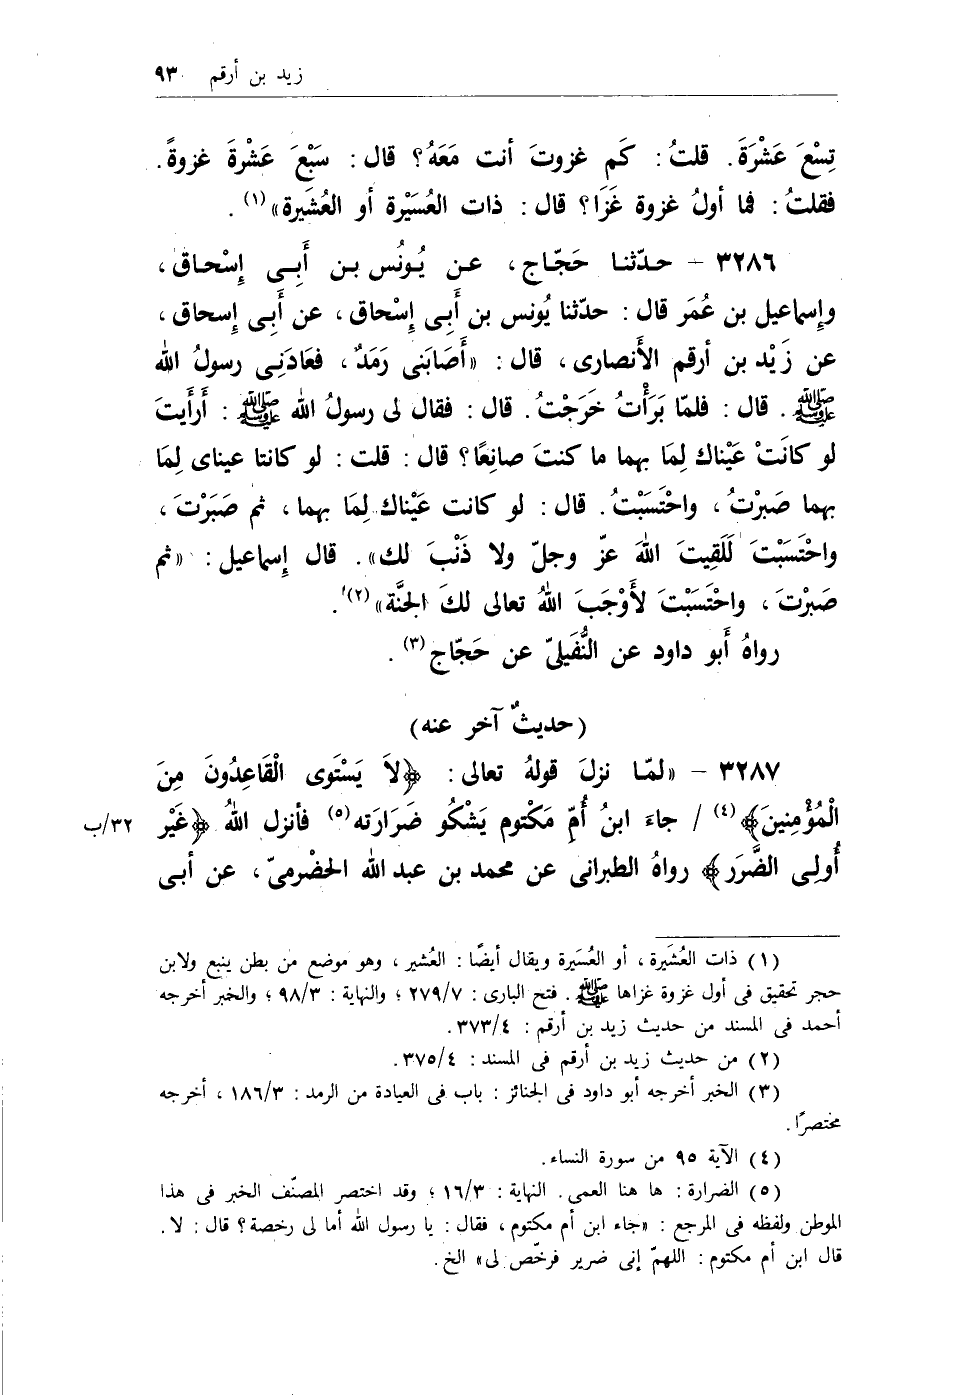 زيد بن أرقم ٩٣
تِسْعَ عَشْرَةَ. قلتُ: كَم غزوتَ أنت مَعَهُ؟ قال: سَبْعَ عَشْرةَ غزوةً.
فقلتُ: فما أولُ غزوة غَزَا؟ قال: ذات العُسَيْرة أو العُشَيرة»(١).
٣٢٨٦ – حدّثنا حَجّاج، عن يُونُس بن أَبِى إسْحاق،
وإسماعيل بن عُمَر قال: حدّثنا يُونس بن أَبِى إسْحاق، عن أَبِى إسحاق،
عن زَيْد بن أرقم الأَنصارى، قال: «أَصَابَنى رَمَدٌ، فعَادَنِى رسولُ الله
ﷺ. قال: فلمّا بَرَأْتُ خَرَجْتُ. قال: فقال لى رسولُ الله ﷺ: أَرَأَيتَ
لو كانَتْ عَيْناك لِمَا بهما ما كنتَ صانِعًا؟ قال: قلت: لو كانتا عيناى لِمَا
بهما صَبرْتُ، واحْتَسَبْتُ. قال: لو كانت عَيْناك لِمَا بهما، ثم صَبَرْتَ،
واحْتَسَبْتَ لَلَقِيتَ اللهَ عزّ وجلّ ولا ذَنْبَ لك». قال إسماعيل: «ثم
صَبرْتَ، واحْتَسَبْتَ لأَوْجَبَ اللهُ تعالى لكَ الجنَّة»(٢).
رواهُ أبو داود عن النُّفَيلىّ عن حَجّاج(٣).
(حديثٌ آخر عنه)
٣٢٨٧ – «لمّا نزلَ قولهُ تعالى: ﴿لاَ يَسْتَوى الْقَاعِدُونَ مِنَ
الْمُؤْمِنينَ﴾(٤) / جاءَ ابنُ أُمّ مَكْتوم يَشْكُو ضَرَارَته(٥) فأنزل اللهُ ﴿غَيْر ٣٢/ب
أُولِى الضَّرَر﴾ رواهُ الطبرانى عن محمد بن عبد الله الحضْرمىّ، عن أبى
(١) ذات العُشَيرة، أو العُسَيرة ويقال أيضًا: العُشير، وهو موضع من بطن ينبع ولابن
حجر تحقيق فى أول غزوة غزاها ﷺ. فتح البارى: ٢٧٩/٧؛ والنهاية: ٩٨/٣؛ والخبر أخرجه
أحمد فى المسند من حديث زيد بن أرقم: ٣٧٣/٤.
(٢) من حديث زيد بن أرقم فى المسند: ٣٧٥/٤.
(٣) الخبر أخرجه أبو داود فى الجنائز: باب فى العيادة من الرمد: ١٨٦/٣، أخرجه
مختصرًا.
(٤) الآية ٩٥ من سورة النساء.
(٥) الضرارة: ها هنا العمى. النهاية: ١٦/٣؛ وقد اختصر المصنّف الخبر فى هذا
الموطن ولفظه فى المرجع: «جاء ابن أم مكتوم، فقال: يا رسول الله أما لى رخصة؟ قال: لا.
قال ابن أم مكتوم: اللهمّ إنى ضرير فرخّص لى» الخ.